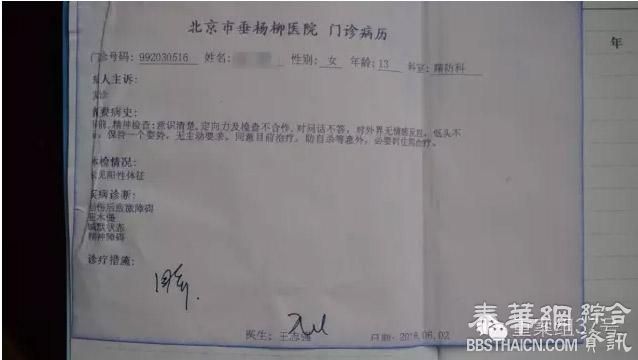 北京市垂杨柳医院 门诊病历
年
门诊号码: 992030516 姓名: 性别: 女 年龄: 13 科室: 精防科
病人主诉:
简要病史:
目前,精神检查:意识清楚,定向力及检查不合作,对问话不答,对外界无情感反应,低头不
保持一个姿势,无主动要求,同意目前治疗,防自杀等意外,必要时住院治疗。
体检情况:
未见阳性体征
疾病诊断:
创伤后应激障碍
亚木僵
缄默状态
精神障碍
诊疗措施:
医生: 王志强 日期: 2016.06.02
重案组37号
泰華網綜合
BBSTHAICN.COM 資訊